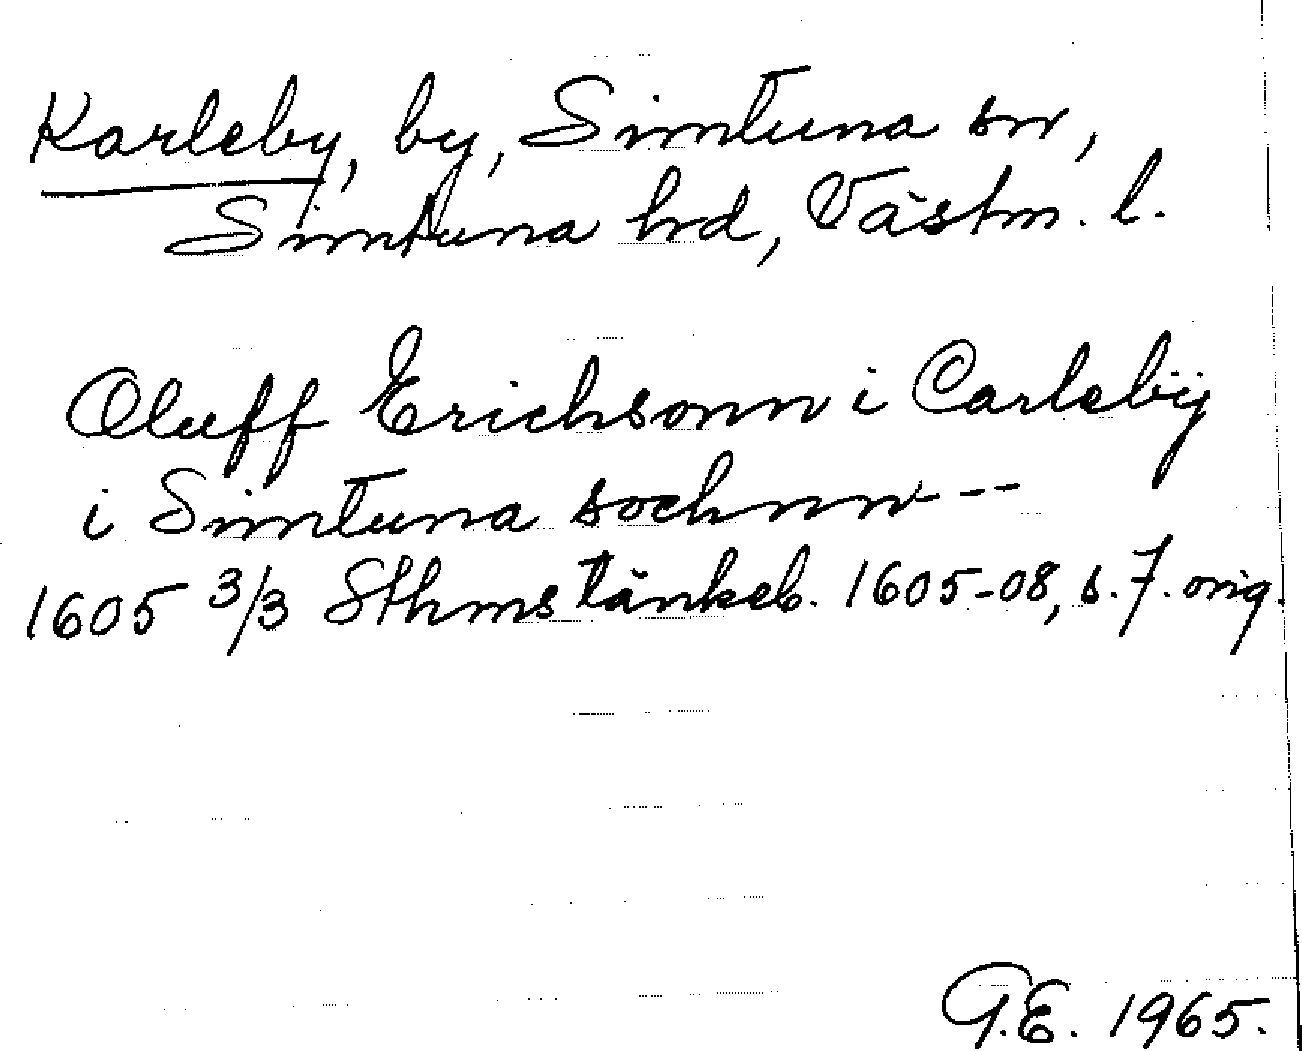 Karleby, by, Simtuna sn,
Simtuna hrd, Västm. l.
Oluff Erichsonn i Carlebÿ
i Simtuna sochnn ---
1605 3/3 Sthms tänkeb. 1605-08, s. 7. orig.
G.E. 1965.